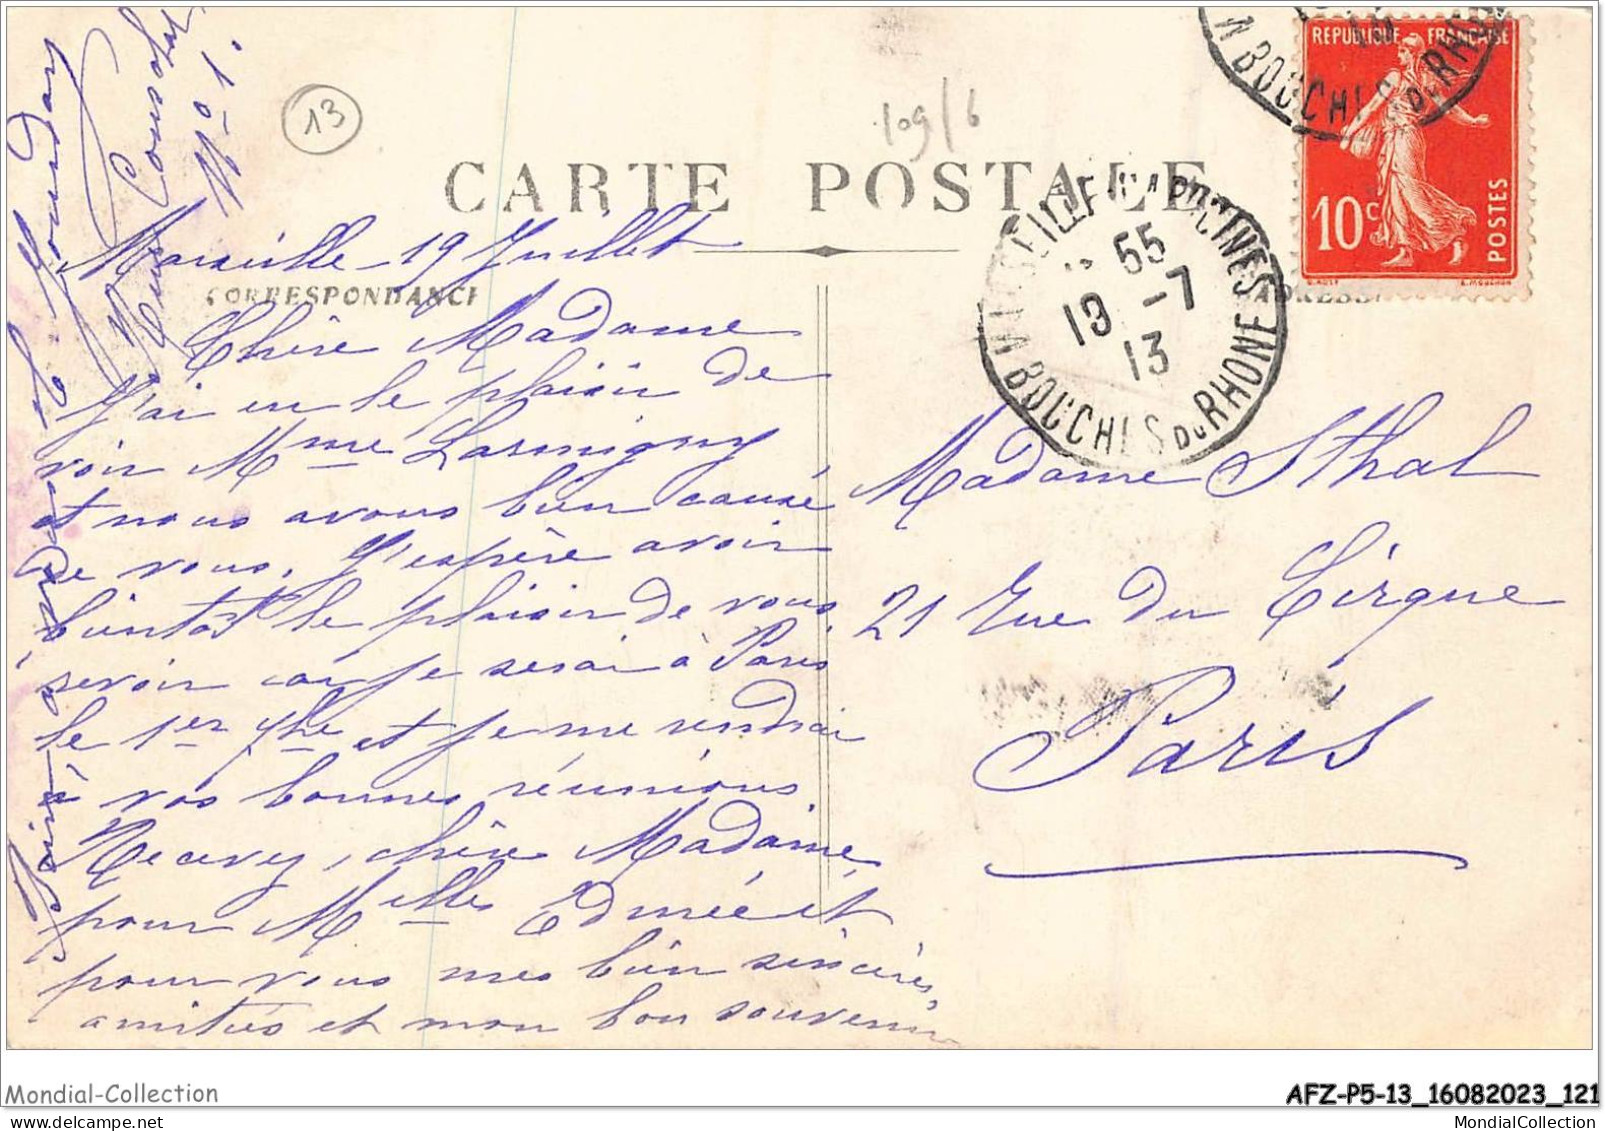 13
109/6
RÉPUBLIQUE FRANÇAISE
10c
POSTES
BOUCHES DU RHONE
CARTE POSTALE
CORRESPONDANCE
ADRESSE
CAPUCINES
55
19 -7
13
BOUCHES DU RHONE
Marseille 19 Juillet
Chère Madame
J'ai eu le plaisir de
voir Mme Larmigny
et nous avons bien causé
de vous. J'espère avoir
bientôt le plaisir de vous
revoir car je serai à Paris
le 1er 7bre et je me rendrai
à vos bonnes réunions
Recevez, chère Madame
pour Melles Edmée et
pour vous mes bien sincères
amitiés et mon bon souvenir
Madame Sthal
21 Rue du Cirque
Paris
Mondial-Collection
AFZ-P5-13_16082023_121
MondialCollection